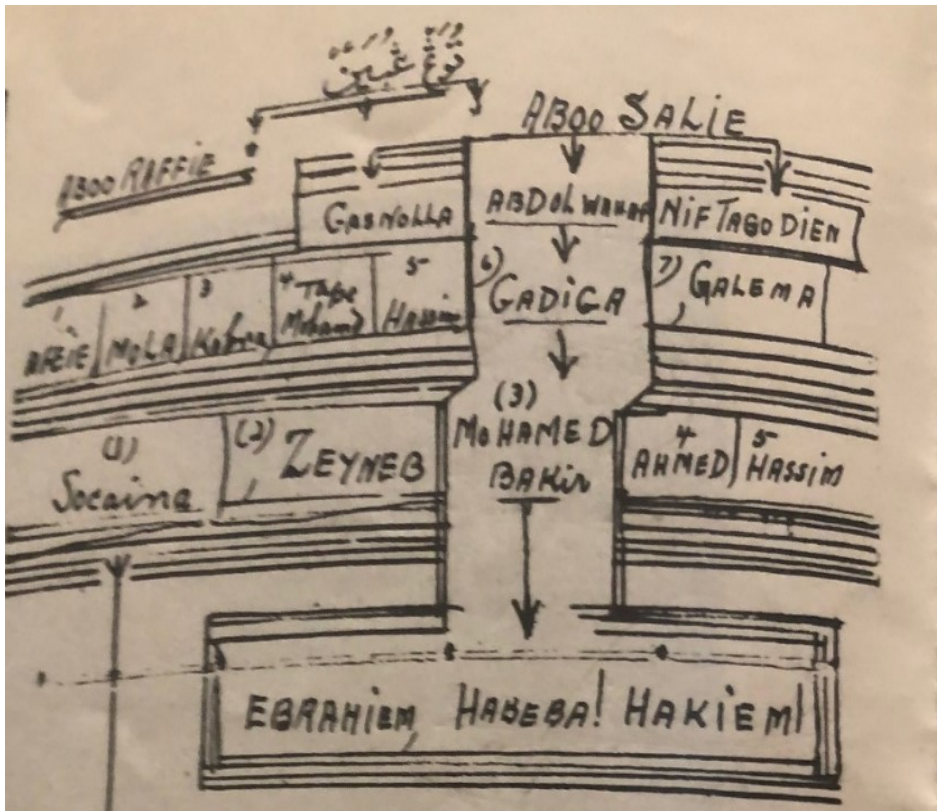 ABOO SALIE
ABOO RAFFIE
GASNOLLA
ABDOL WAHAB
NIF TAGODIEN
1
2 MOLA
3
4 Tape Mohamd
5 Hassim
6) GADIGA
7) GALEMA
(1) Socaina
(2) ZEYNEB
(3) MOHAMED BAKIR
4 AHMED
5 HASSIM
EBRAHIEM, HABEBA! HAKIEM!